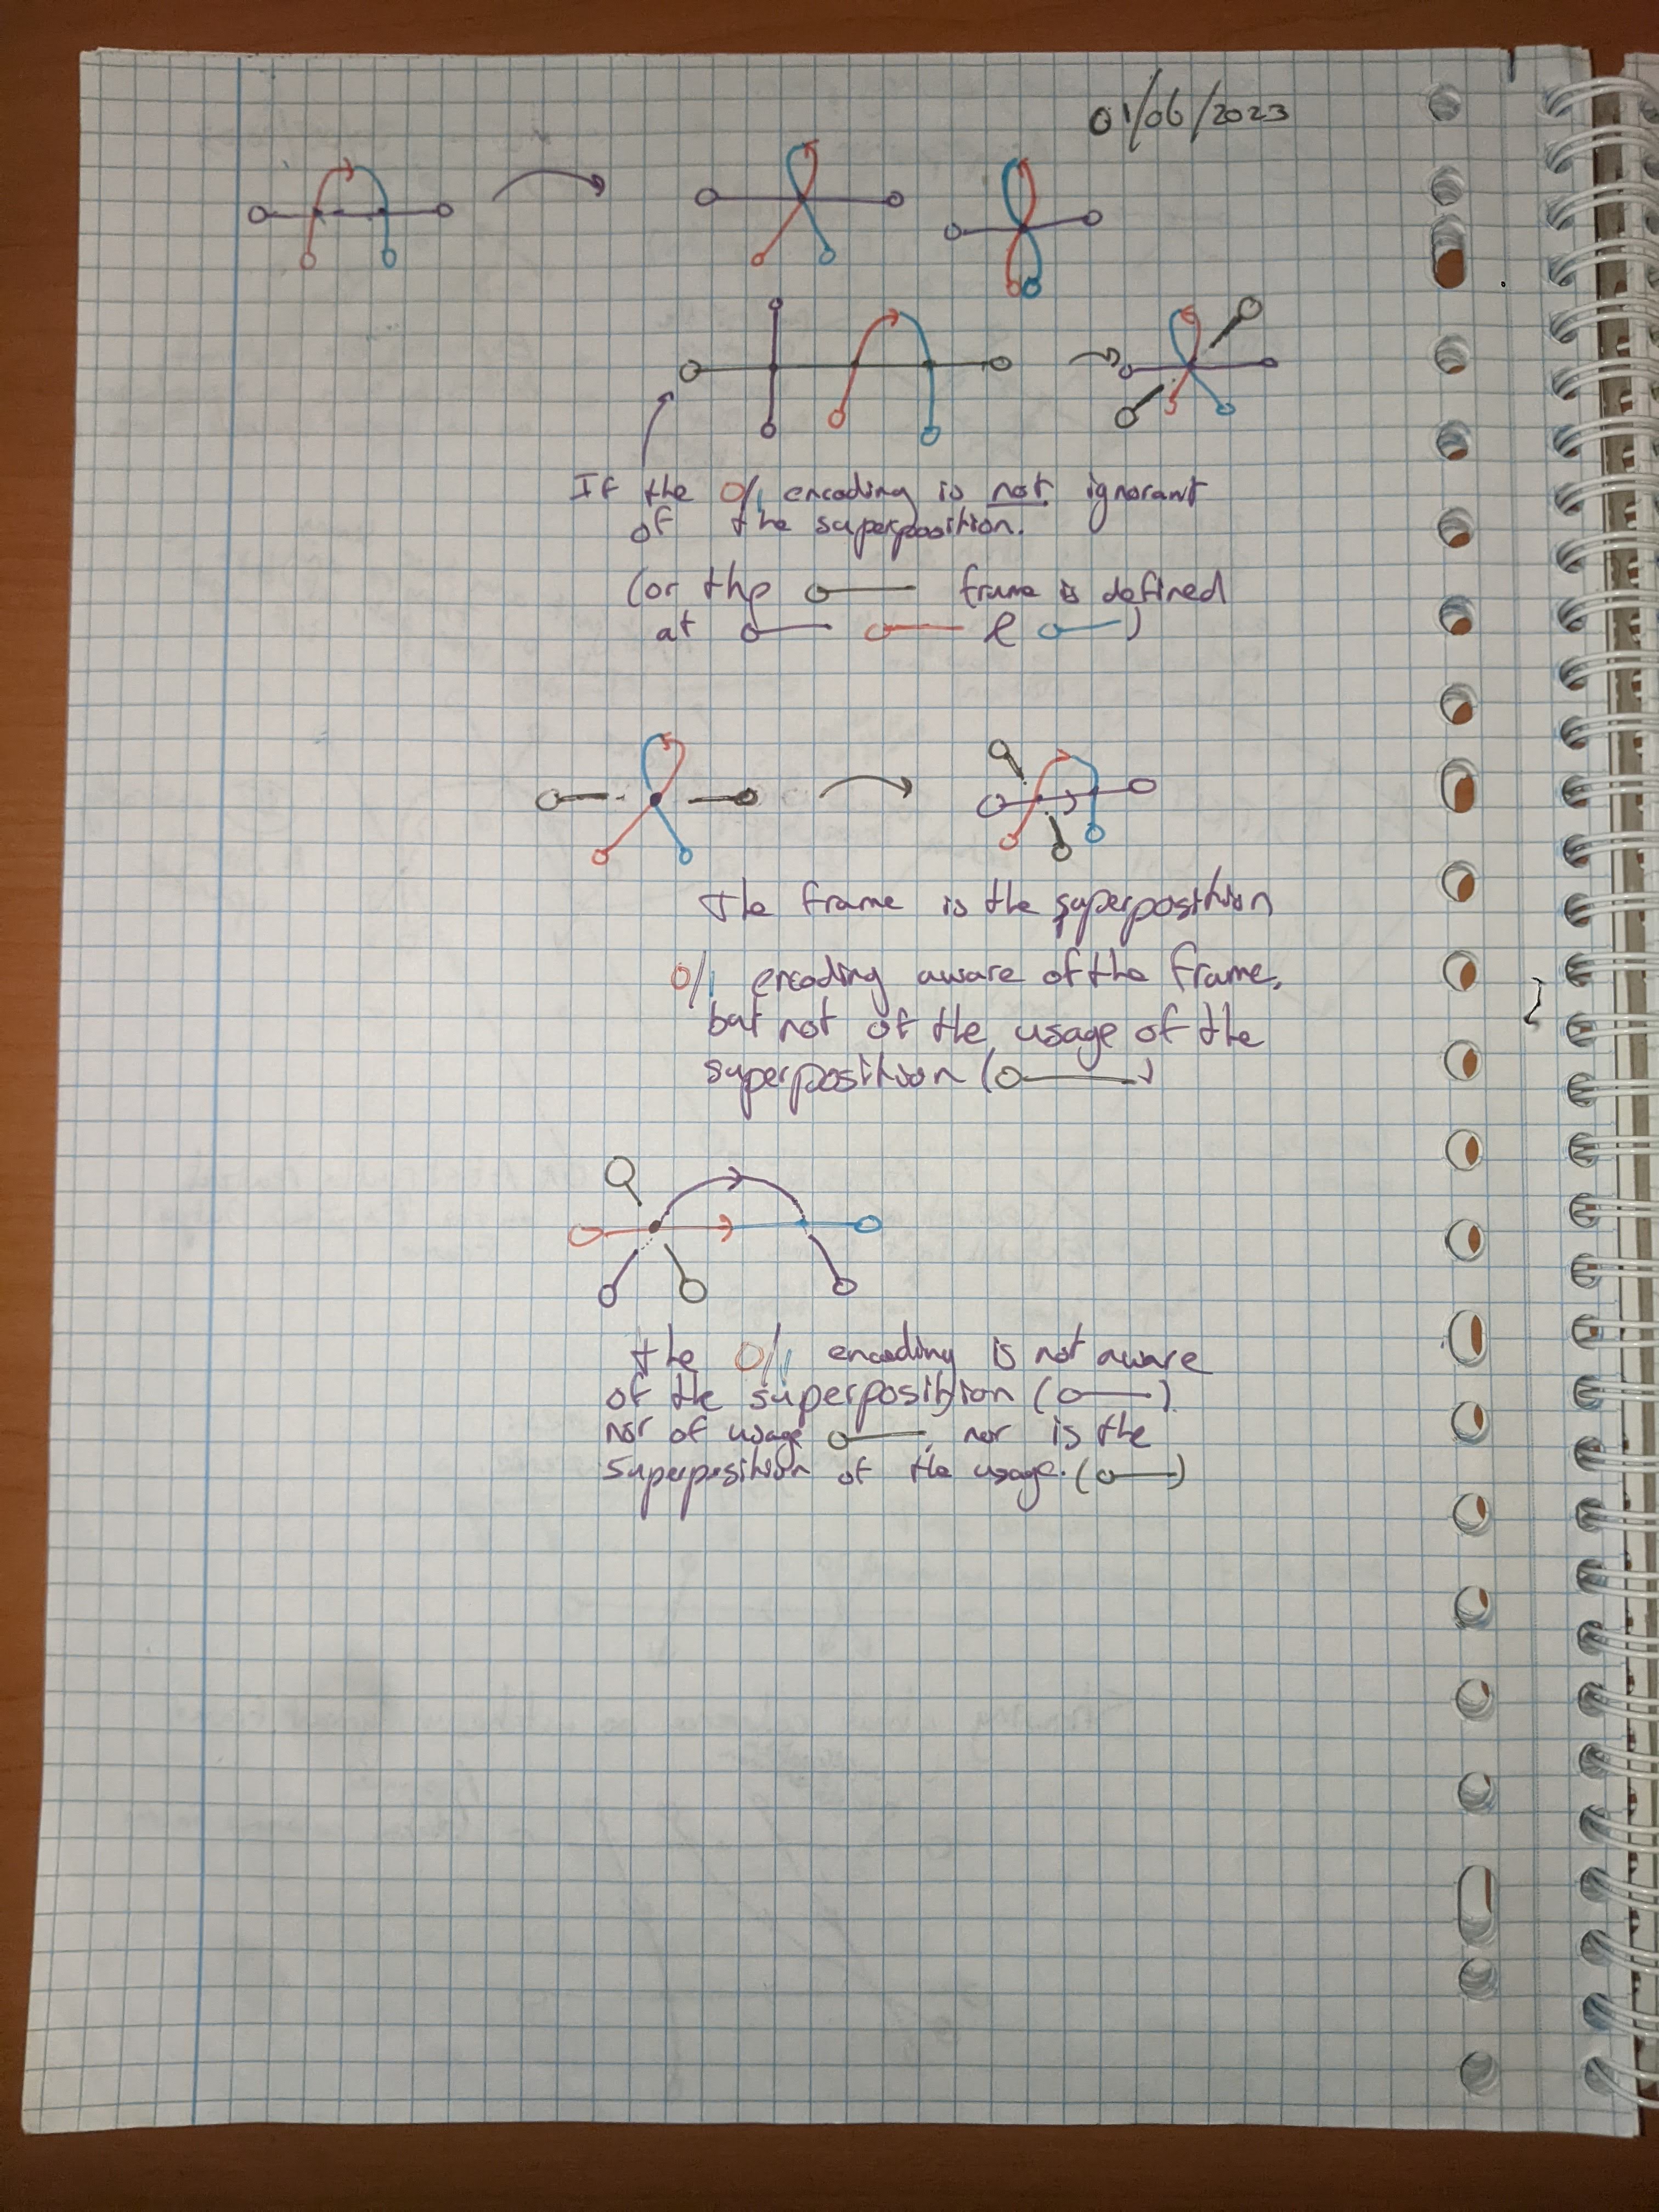 01/06/2023
If the 0/1 encoding is not ignorant
of the superposition.
(or the frame is defined
at & )
The frame is the superposition
0/1 encoding aware of the frame,
but not of the usage of the
superposition ( )
the 0/1 encoding is not aware
of the superposition ( ).
nor of usage , nor is the
superposition of the usage. ( )